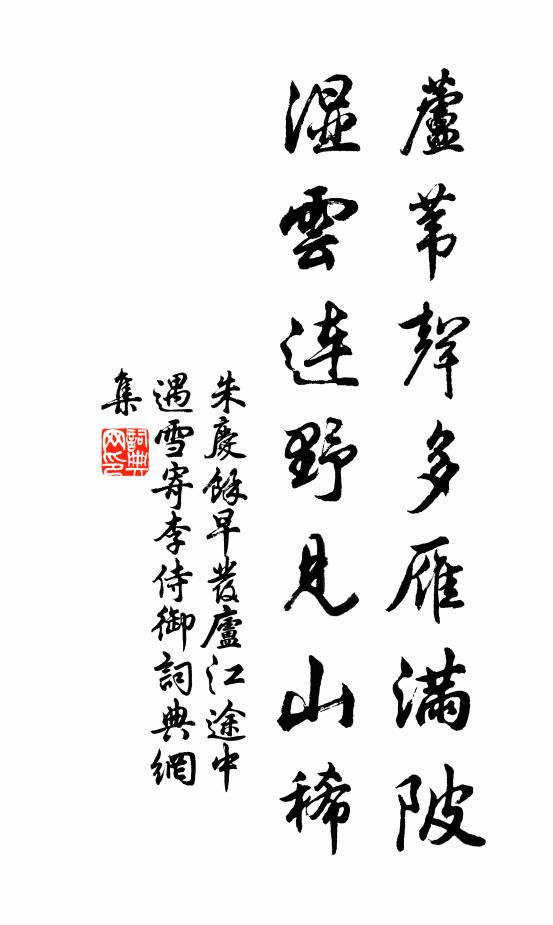 蘆葦聲多雁滿陂
濕雲連野見山稀
朱慶餘早發廬江途中
遇雪寄李侍御詞典網
集
詞典
网印